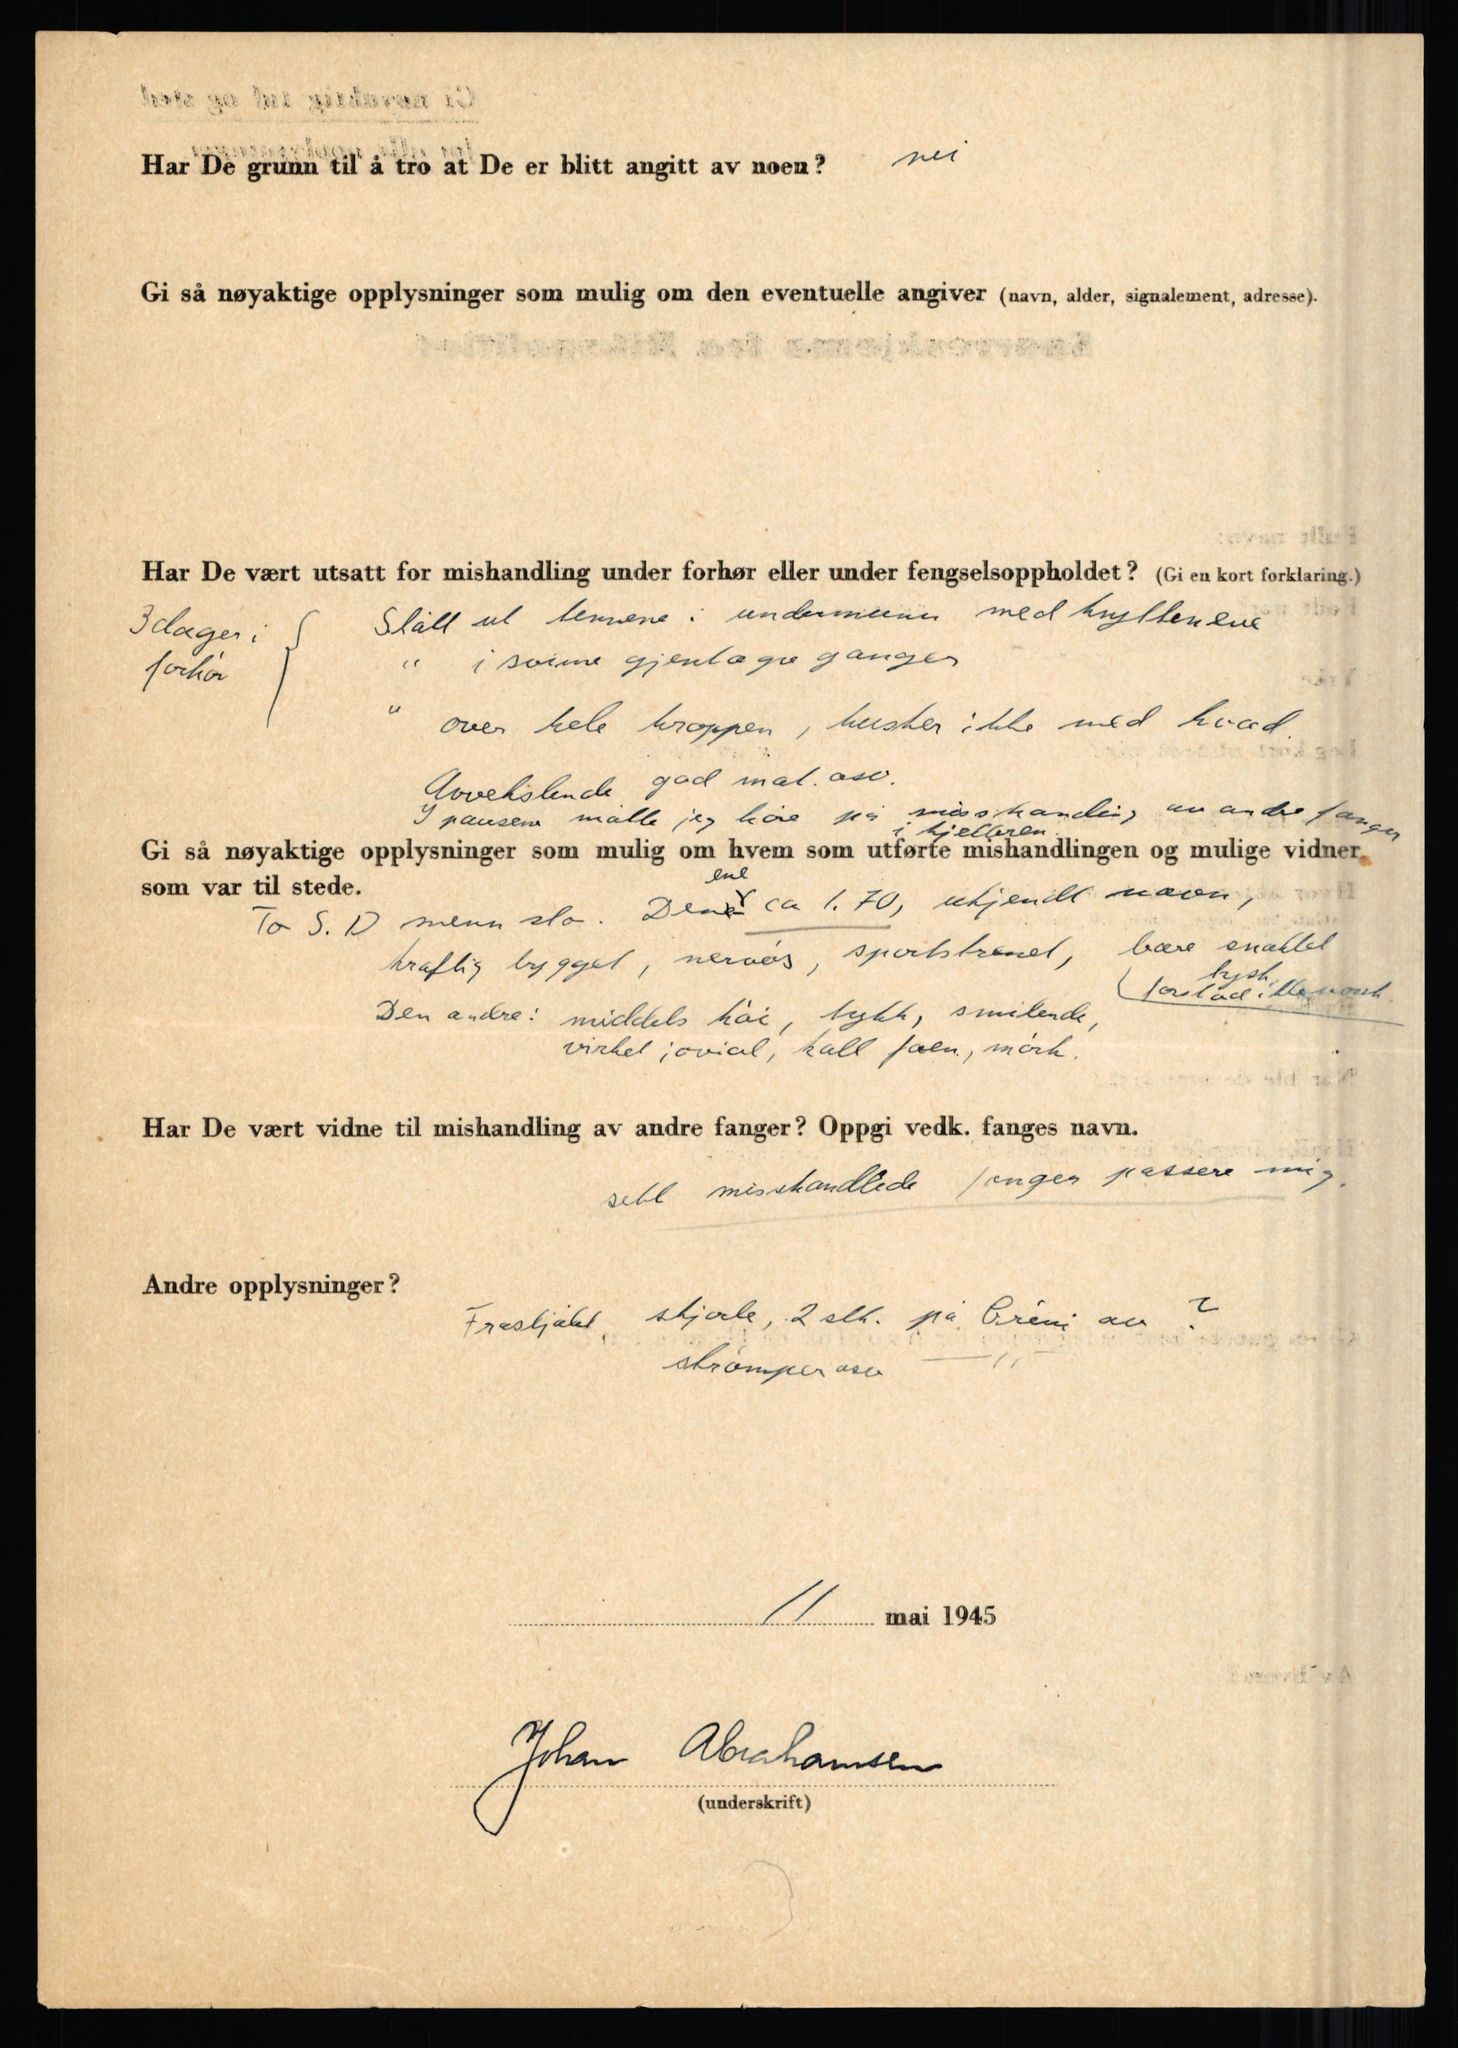 Har De grunn til å tro at De er blitt angitt av noen? nei
Gi så nøyaktige opplysninger som mulig om den eventuelle angiver (navn, alder, signalement, adresse).
Har De vært utsatt for mishandling under forhør eller under fengselsoppholdet? (Gi en kort forklaring.)
3 dager i
forhör
Slått ut tennene i undermunn med knyttenene
" i svime gjentagne ganger
" over hele kroppen, husker ikke med hvad.
Avvekslende god mat. osv.
I pausene måtte jeg höre på misshandling av andre fanger
i kjelleren
Gi så nøyaktige opplysninger som mulig om hvem som utførte mishandlingen og mulige vidner
som var til stede.
To S.D menn slo. Den ene ca 1.70, ukjendt navn,
kraftig bygget, nervös, sportstrenet, bare snakket
tysk,
forstod ikke norsk.
Den andre: middels höi, tykk, smilende,
virket jovial, kall faen, mörk.
Har De vært vidne til mishandling av andre fanger? Oppgi vedk. fanges navn.
sett misshandlede fanger passere mig.
Andre opplysninger?
Frastjålet skjorte, 2 stk. på Grini av ?
strömper osv — " —
11 mai 1945
Johan Abrahamsen
(underskrift)